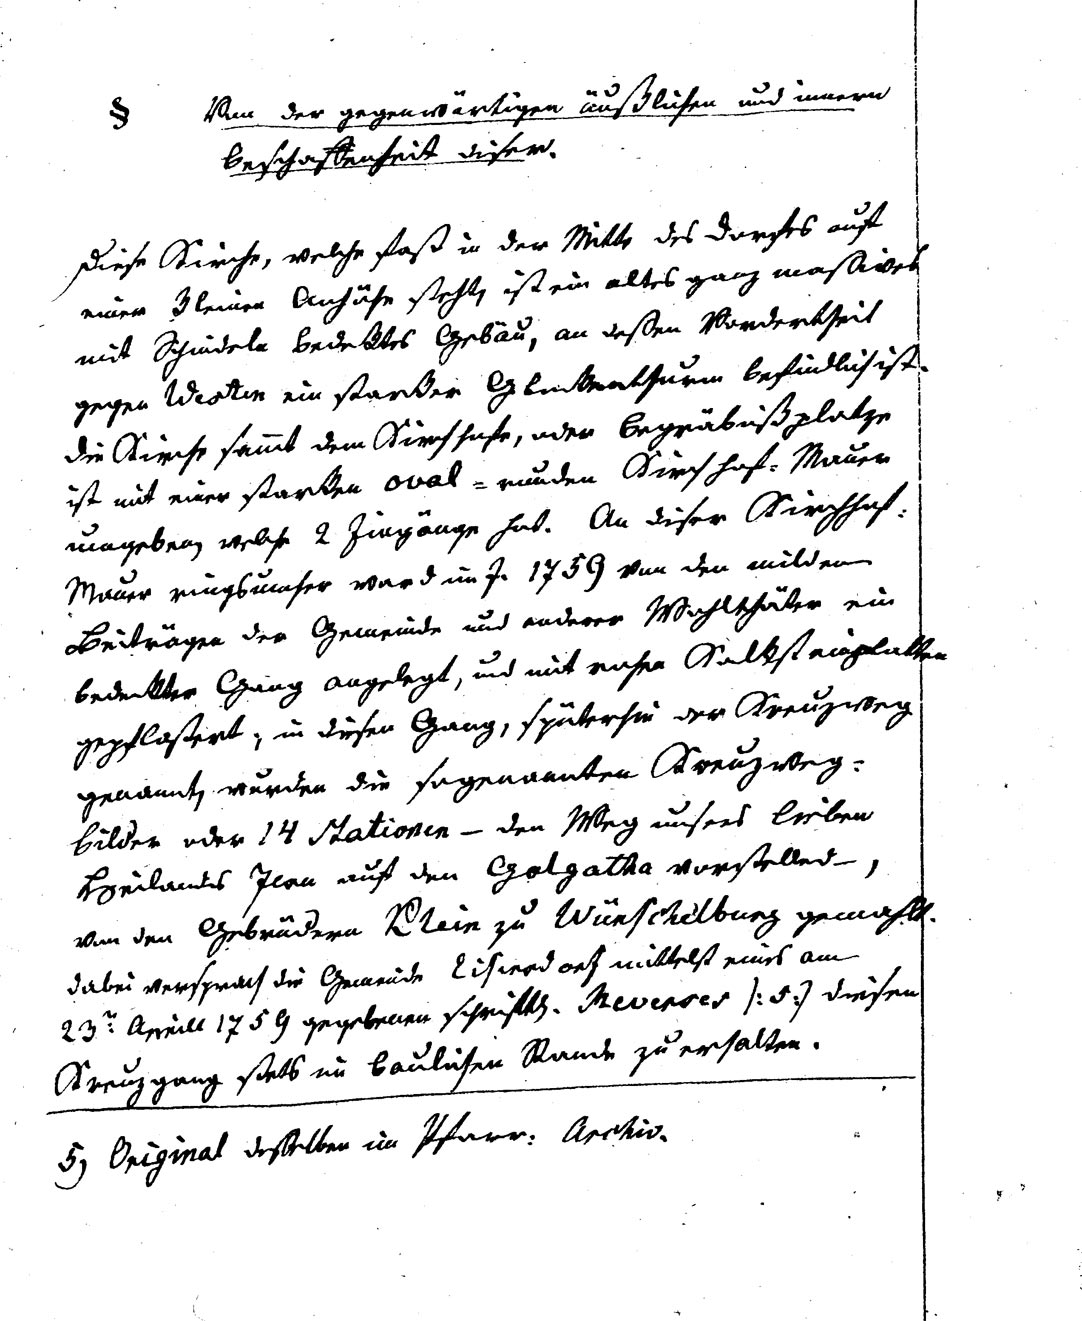 § Von der gegenwärtigen äußlichen und innern
beschaffenheit diser.
Diese Kirche, welche fast in der Mitte des Dorfes auf
einer kleinen Anhöhe steht, ist ein altes ganz massives
mit Schindeln bedektes Gebäu, an deßen Vordertheil
gegen Westen ein starker Glockenthurm befindlich ist.
die Kirche samt dem Kirchhofe, oder begräbnißplatze
ist mit einer starken oval = runden Kirchhof: Mauer
umgeben, welche 2 Eingänge hat. An diser Kirchhof:
Mauer ringsumher ward im J. 1759 von den milden
Beiträgen der Gemeinde und anderer Wohlthäter ein
bedekter Gang angelegt, und mit rohen Kalksteinplatten
gepflastert; in diesen Gang, späterhin der Kreuzweg
genannt, wurden die sogenannten Kreuzweg:
bilder oder 14 Stationen – den Weg unsers lieben
Heilandes Jesu auf den Golgatha vorstelled –,
von den Gebrüdern Klein zu Wünschelburg gemahlt.
dabei versprach die Gemeinde Eisersdorf mittelst eines am
23n: Aprill 1759 gegebenen schriftl. Reverses /:5:/ diesen
Kreuzgang stets im baulichen Stande zu erhalten.
5, Original desselben im Pfarr: Archiv.